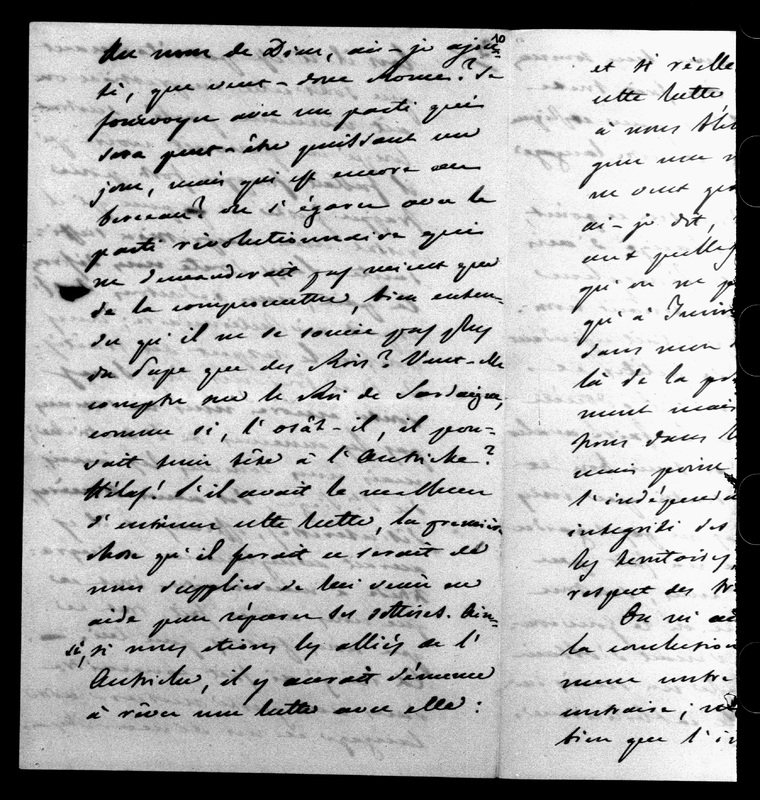 10
Au nom de Dieu, ai-je ajou=
té, que veut-donc Rome? Se
fourvoyer avec un parti qui
sera peut-être puissant un
jour, mais qui est encore au
berceau? ou s'égarer avec le
parti révolutionnaire qui
ne demanderait pas mieux que
de la compromettre, bien enten-
du qu'il ne se soucie pas plus
du Pape que des Rois? Veut-elle
compter sur le Roi de Sardaigne,
comme si, l'osât-il, il pou=
vait tenir tête à l'Autriche?
Hélas! s'il avait le malheur
d'entamer cette lutte, la première
chose qu'il ferait ce serait de
nous supplier de lui venir en
aide pour réparer ses sottises. Ain=
si, si nous étions les alliés de l'
Autriche, il y aurait démence
à rêver une lutte avec elle:
et si réelle
cette lutte
à nous
que nous
ne veut
ai-je dit,
qu'on ne
qu'à Turin
dans mon
là de la
ment mais
nous dans
mais point
l'indépenda
intégrité des
les territoires,
respect des
On m'a
la conclusion
même
contraire;
bien que l'i